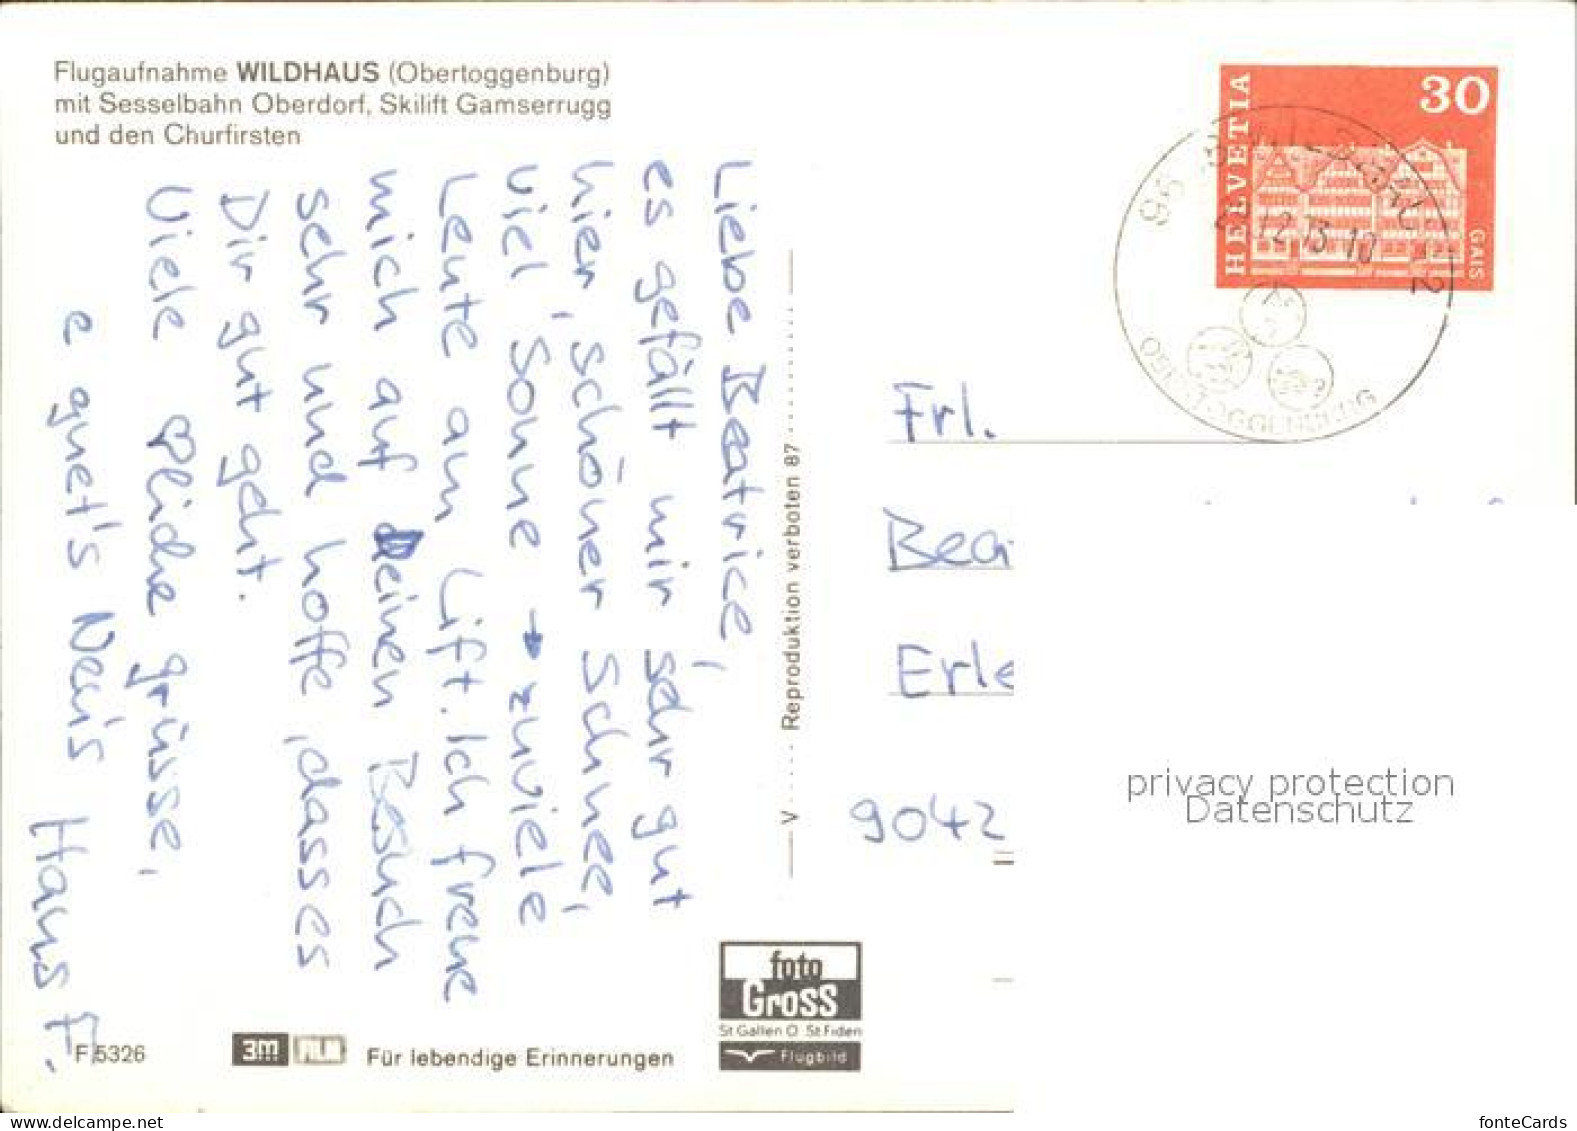 Flugaufnahme WILDHAUS (Obertoggenburg)
mit Sesselbahn Oberdorf, Skilift Gamserrugg
und den Churfirsten
HELVETIA
30
GAIS
OBERTOGGENBURG
Liebe Beatrice,
es gefällt mir sehr gut
hier, schöner Schnee,
viel Sonne → zuviele
Leute am Lift. Ich freue
mich auf deinen Besuch
sehr und hoffe, dass es
Dir gut geht.
Viele ♡liche grüsse,
e guet's Neu's
Hans F.
V Reproduktion verboten 87
Frl.
Bea
Erle
9042
privacy protection
Datenschutz
foto
Gross
St Gallen O St Fiden
Flugbild
F 5326
3m
FILM
Für lebendige Erinnerungen
fonteCards